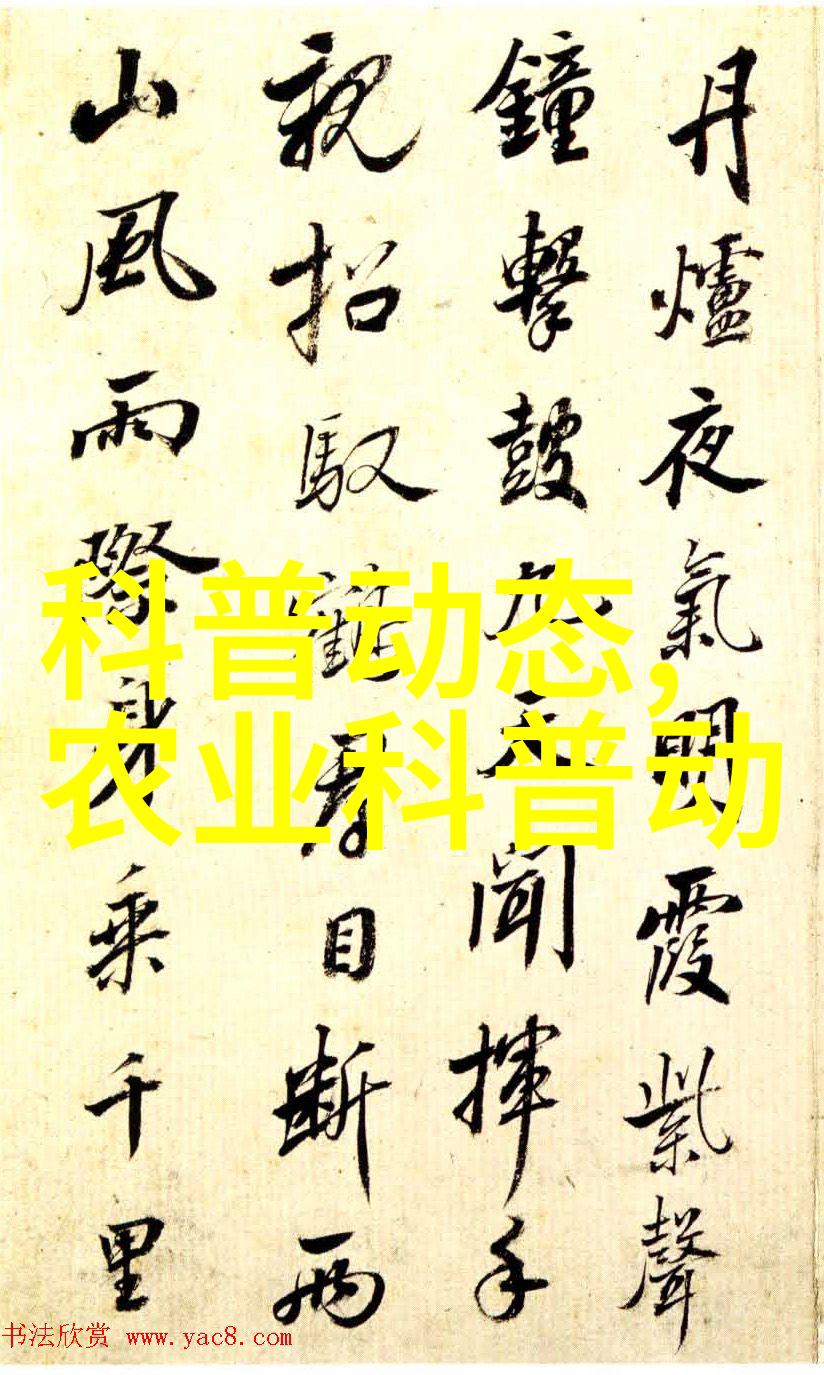 丹爐夜氣霞紫聲
鐘擊鼓天聞揮手
親招馭看目斷兩
山風雨際身乘千里
科普动态,
农业科普动
书法欣赏 www.yac8.com